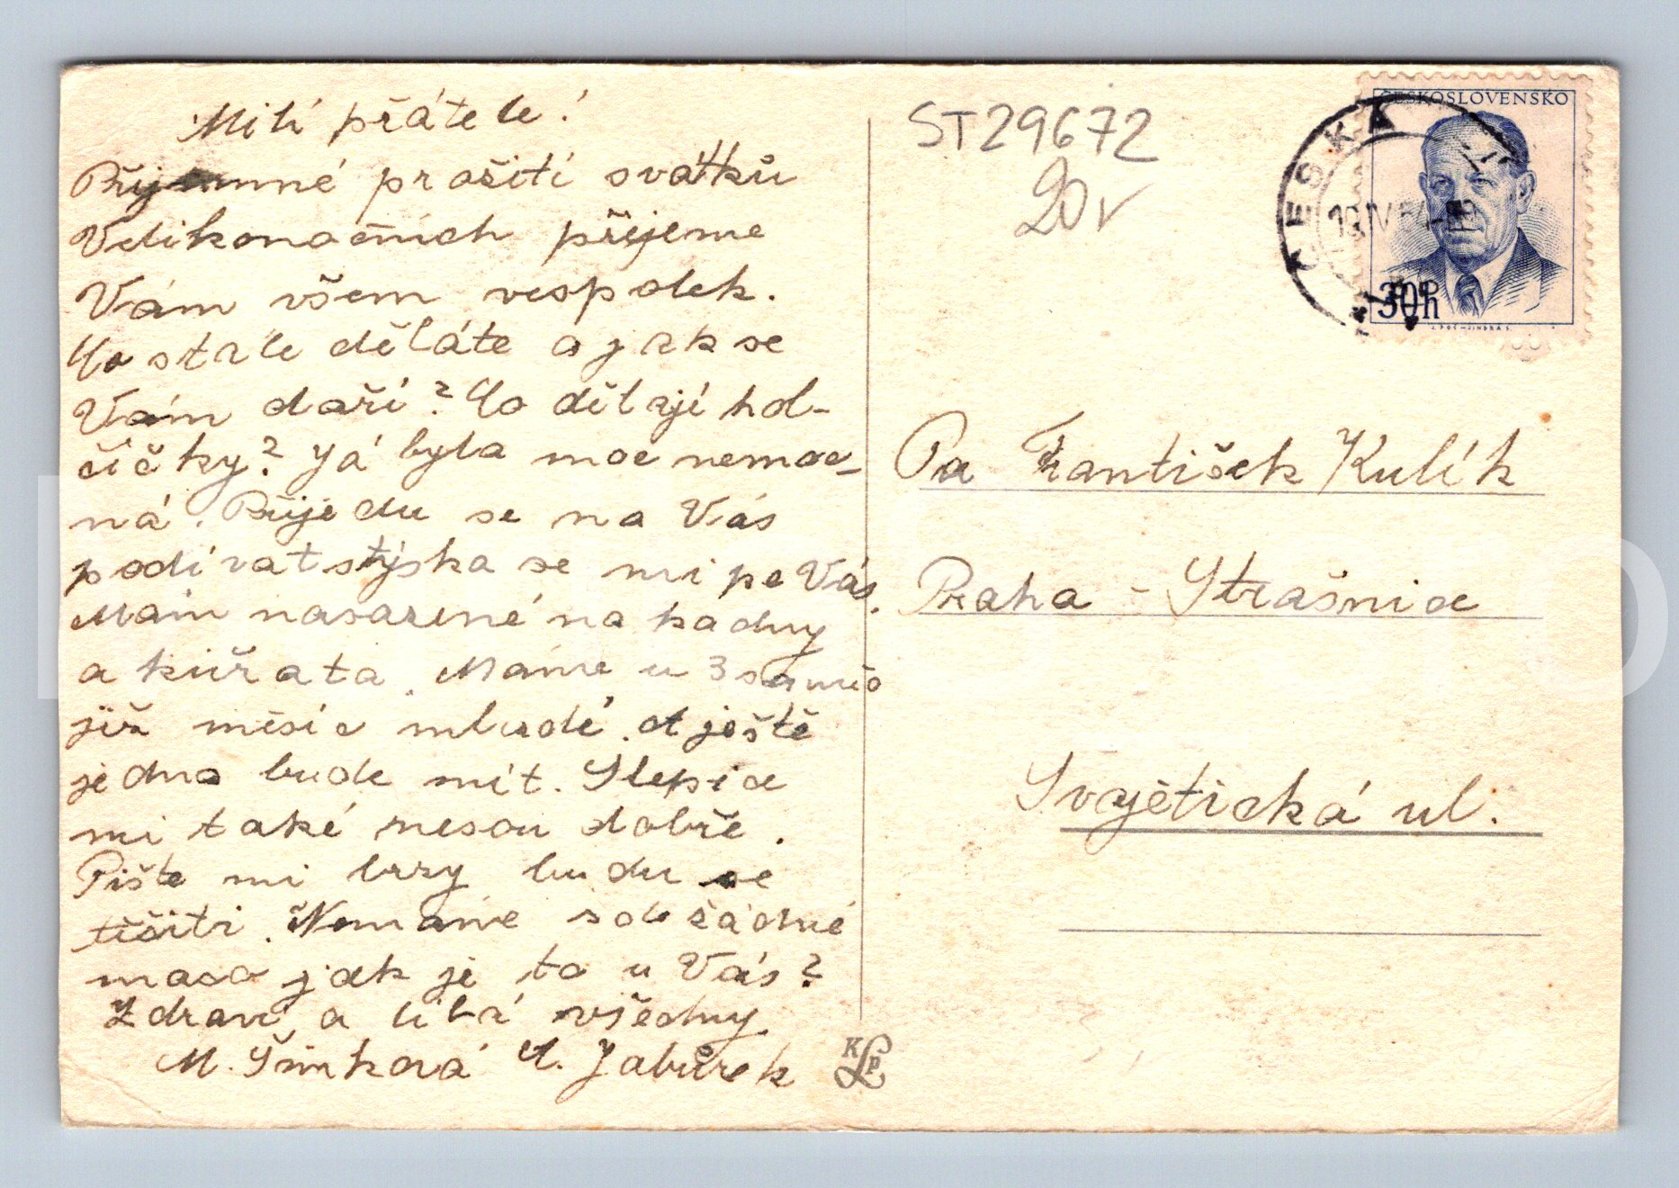 Milí přátelé!
Příjemné prožití svátků
Velikonočních přejeme
Vám všem vespolek.
Co stále děláte a jak se
Vám daří? Co dělají hol-
čičky? Já byla moc nemoc-
ná. Přijedu se na Vás
podívat stýska se mi po Vás.
Mám nasazené na kachny
a kuřata. Máme u 3 samic
již měsíc mladé. A ještě
jedna bude mít. Slepice
mi také nesou dobře.
Pište mi brzy budu se
těšiti. Nemáme zde žádné
maso jak je to u Vás?
Zdraví a líbá všechny
M. Šimková A. Jabůrek
ST29672
20v
ČESKOSLOVENSKO
30h
ČESKÁ
Pa František Kulík
Praha - Strašnice
Svojetická ul.
KLP